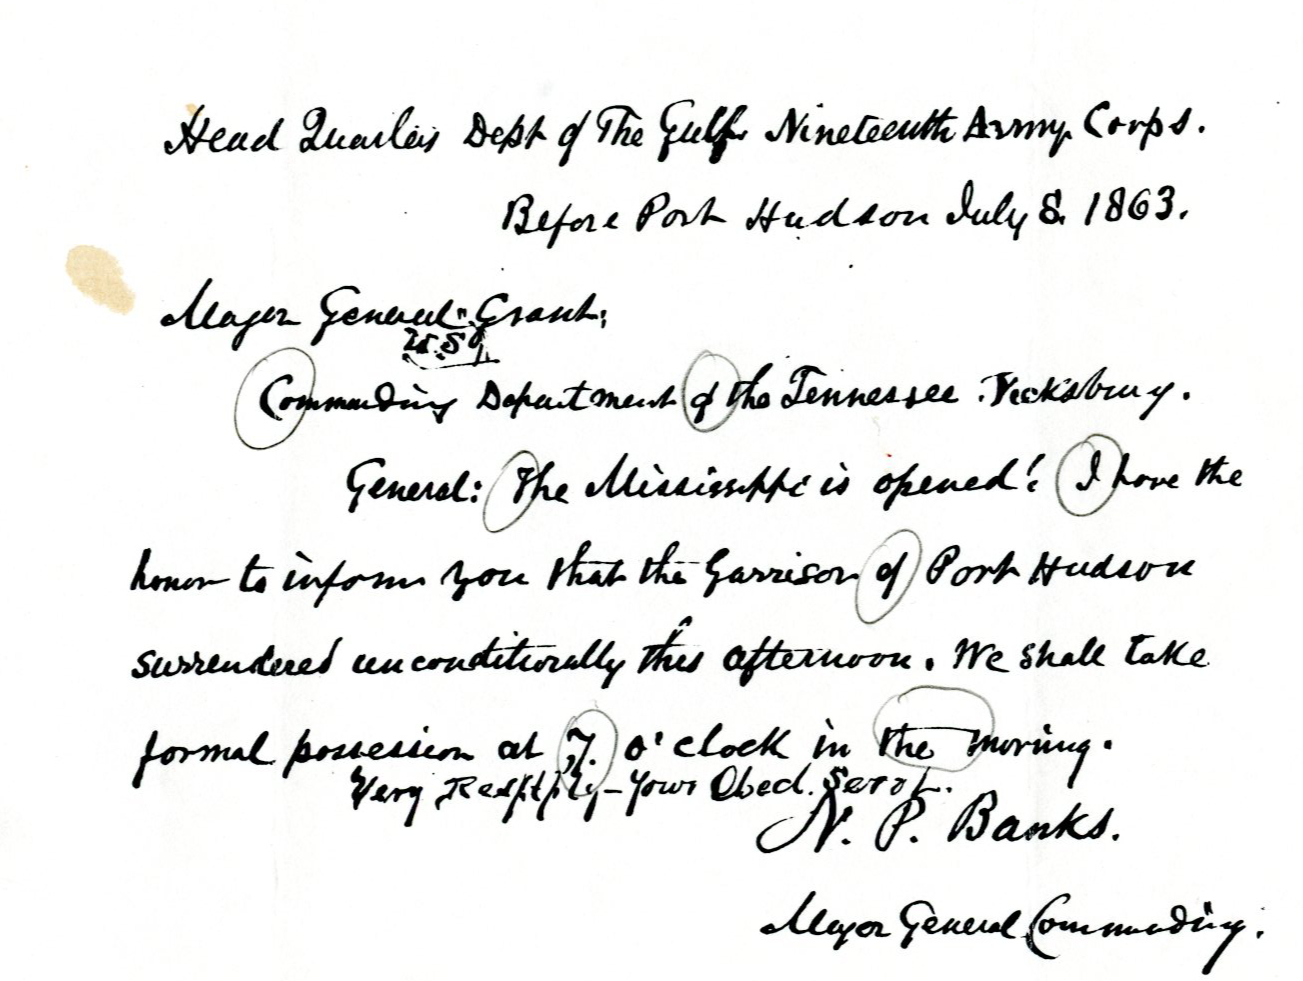 Head Quarters Dept of The Gulf Nineteenth Army Corps.
Before Port Hudson July 8. 1863.
Major General Grant,
U.S.
Commanding Department of the Tennessee. Vicksburg.
General: The Mississippi is opened! I have the
honor to inform you that the Garrison of Port Hudson
surrendered unconditionally this afternoon. We shall take
formal possession at 7. o'clock in the morning.
Very Respctfly - Your Obed. Servt.
N. P. Banks.
Major General Commanding.